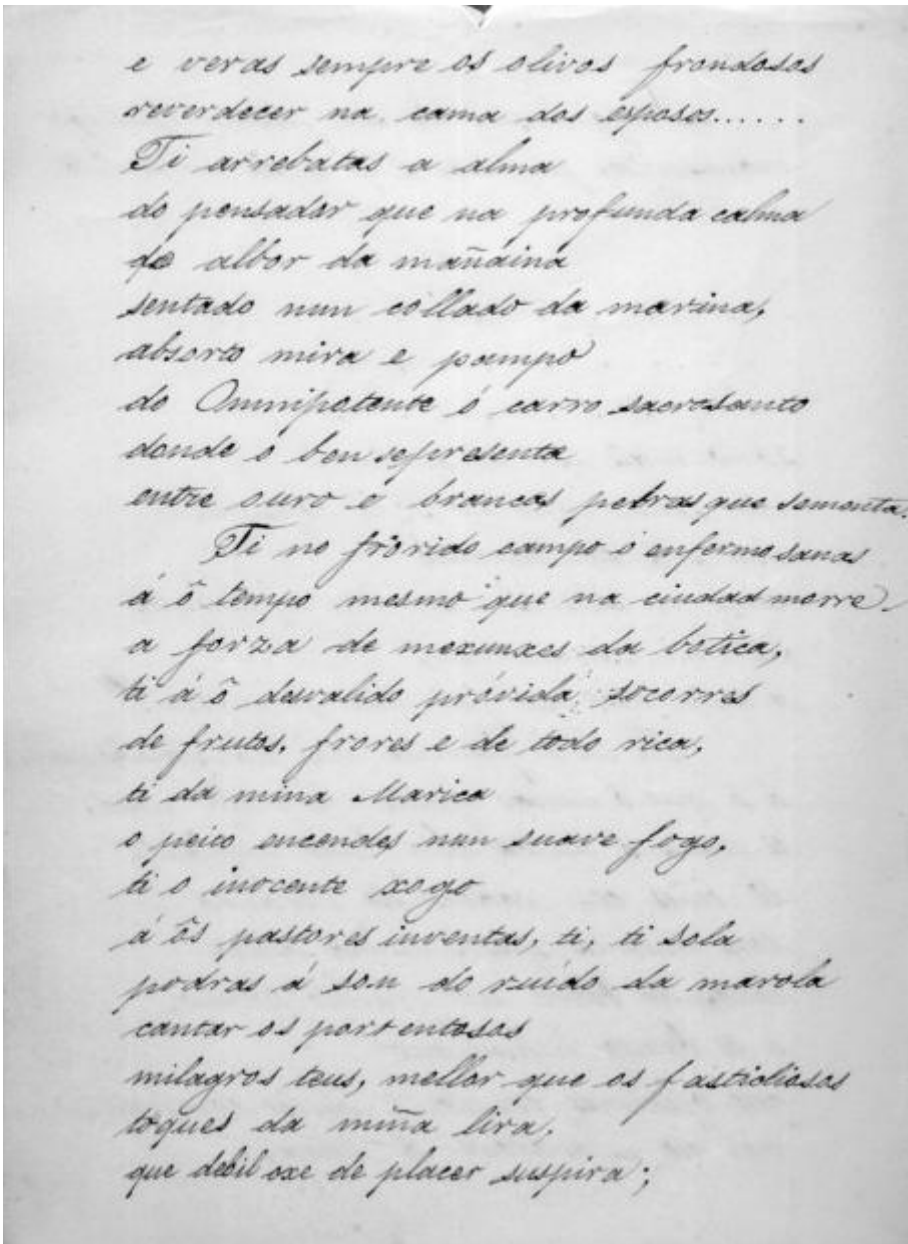 e veras sempre os olivos frondosos
reverdecer na cama dos esposos......
Ti arrebatas a alma
do pensador que na profunda calma
do albor da mañaina
sentado nun collado da marina,
absorto mira e pampo
do Omnipotente ó carro sacrosanto
donde o ben se presenta
entre ouro e brancas pebras que sementa.
Ti no frorido campo ó enfermo sanas
á ô tempo mesmo que na ciudad morre
a forza de mexunxes da botica,
ti á ô desvalido próvida socorres
de frutos, frores e de todo rica,
ti da mina Marica
o peito encendes nun suave fogo,
ti o inocente xogo
á ôs pastores inventas, ti, ti sola
podras á son do ruido da marola
cantar os portentosos
milagros teus, mellor que os fastidiosos
toques da miña lira,
que debil oxe de placer suspira;